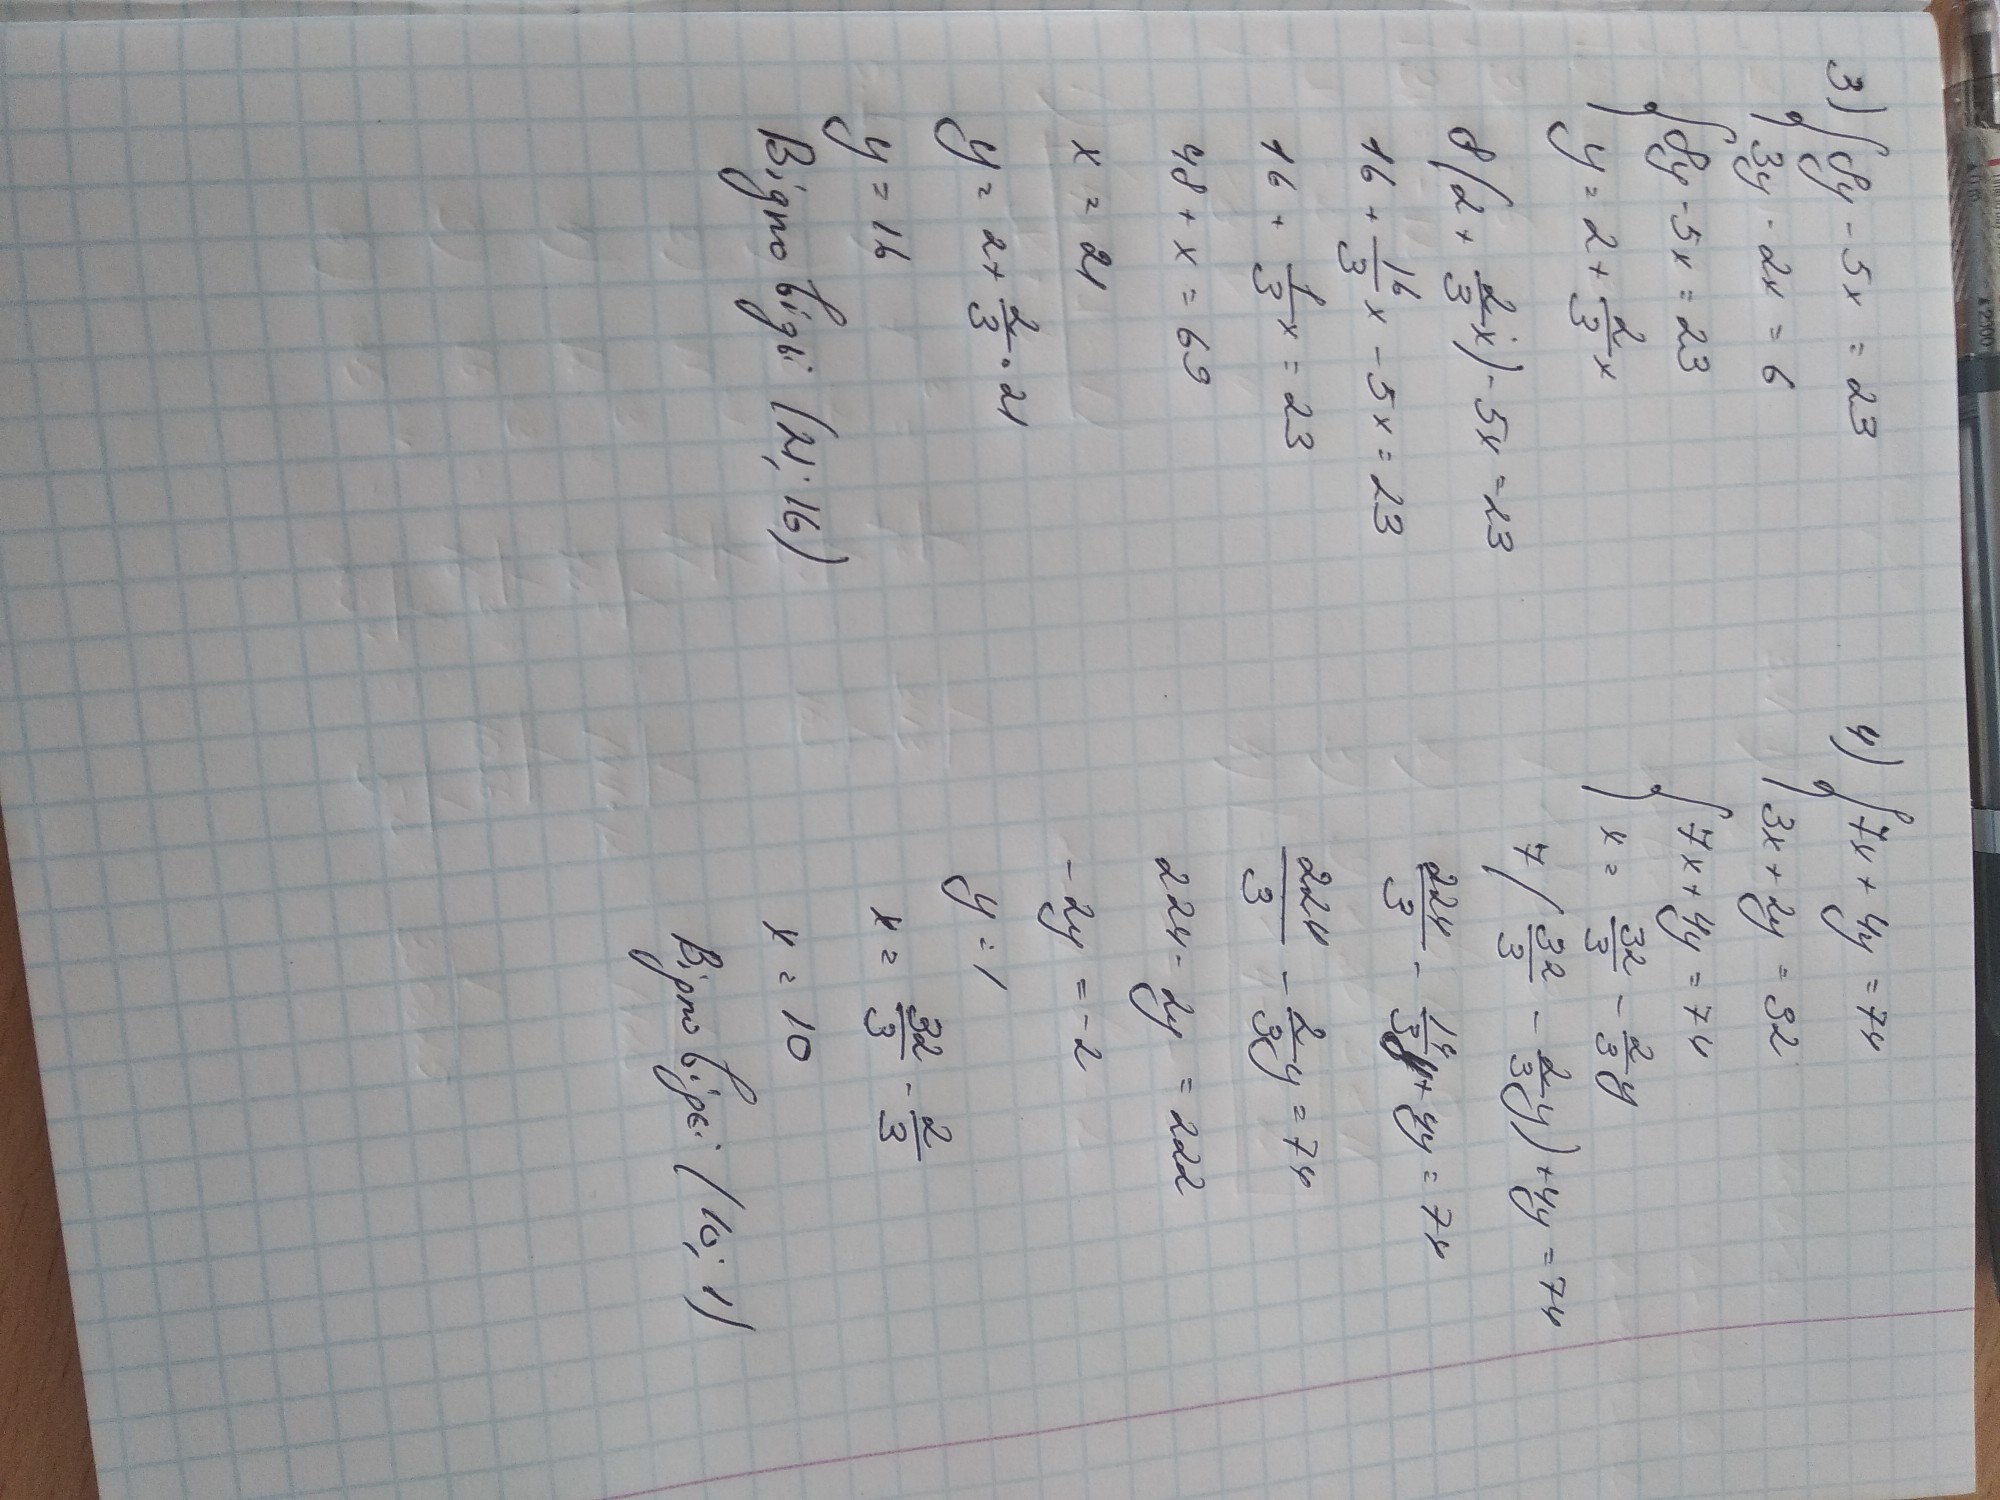 3) { 8y - 5x = 23
3y - 2x = 6
{ 8y - 5x = 23
y = 2 + 2/3 x
8(2 + 2/3 x) - 5x = 23
16 + 16/3 x - 5x = 23
16 + 1/3 x = 23
48 + x = 69
x = 21
y = 2 + 2/3 · 21
y = 16
Відповідь: (21; 16)
4) { 7x + 4y = 74
3x + 2y = 32
{ 7x + 4y = 74
x = 32/3 - 2/3 y
7(32/3 - 2/3 y) + 4y = 74
224/3 - 14/3 y + 4y = 74
224/3 - 2/3 y = 74
224 - 2y = 222
-2y = -2
y = 1
x = 32/3 - 2/3
x = 10
Відповідь: (10; 1)